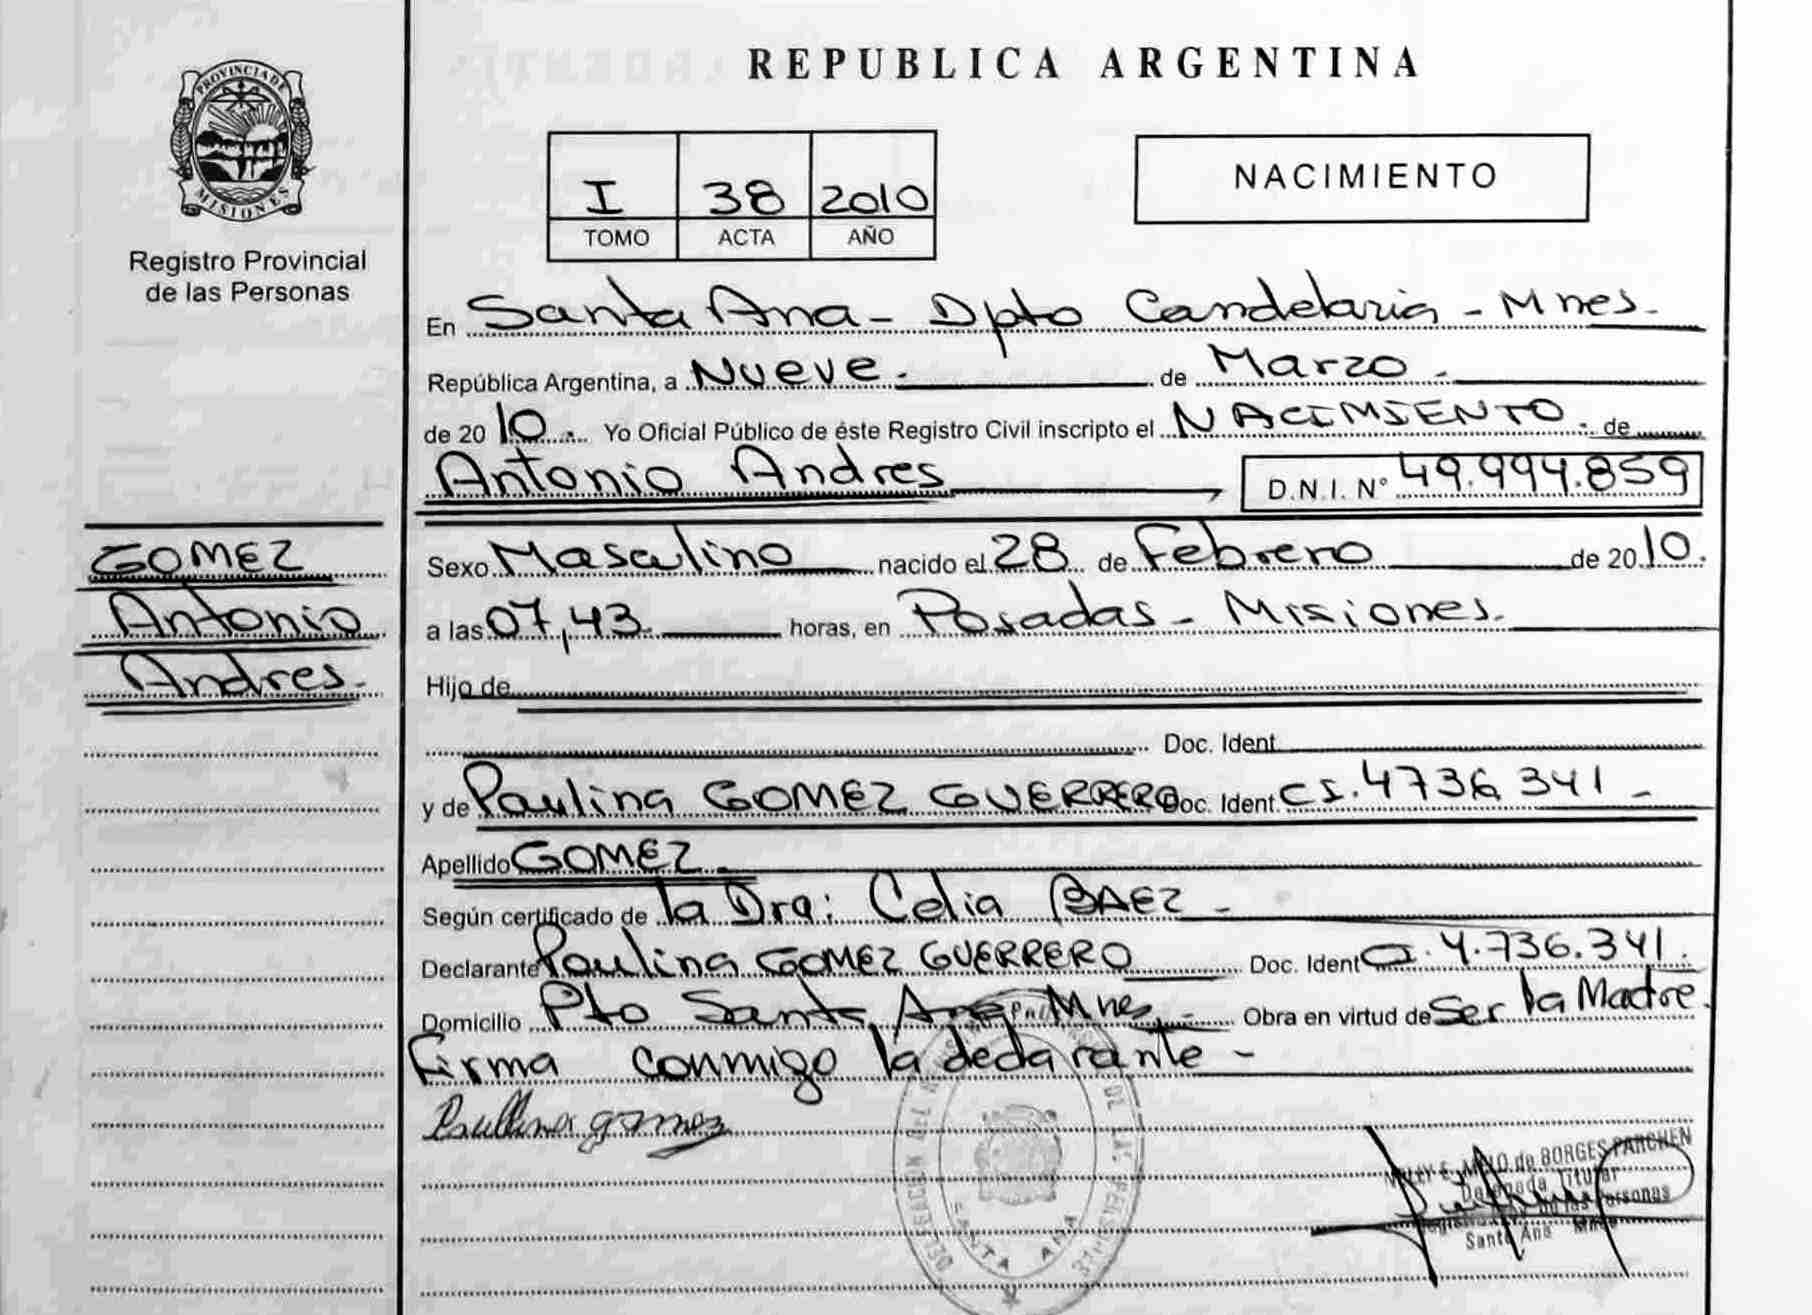 REPUBLICA ARGENTINA
PROVINCIA DE
MISIONES
Registro Provincial
de las Personas
I 38 2010
TOMO ACTA AÑO
NACIMIENTO
En Santa Ana - Dpto Candelaria - Mnes.
República Argentina, a Nueve.- de Marzo.
de 2010.- Yo Oficial Público de éste Registro Civil inscripto el NACIMIENTO.- de
Antonio Andres D.N.I. N° 49.994.859
GOMEZ
Antonio
Andres.
Sexo Masculino nacido el 28 de Febrero de 2010.
a las 07,43. horas, en Posadas - Misiones.
Hijo de
Doc. Ident.
y de Paulina GOMEZ GUERRERO Doc. Ident. CI. 4736 341 -
Apellido GOMEZ.
Según certificado de la Dra: Celia BAEZ -
Declarante Paulina GOMEZ GUERRERO Doc. Ident CI. 4.736.341.
Domicilio Pto Santa Ana Mnes.- Obra en virtud de Ser la Madre.
Firma conmigo la declarante -
Paulina gomez
de BORGES PARCHEN
Delegada Titular
de las Personas
Santa Ana Mnes
SANTA ANA